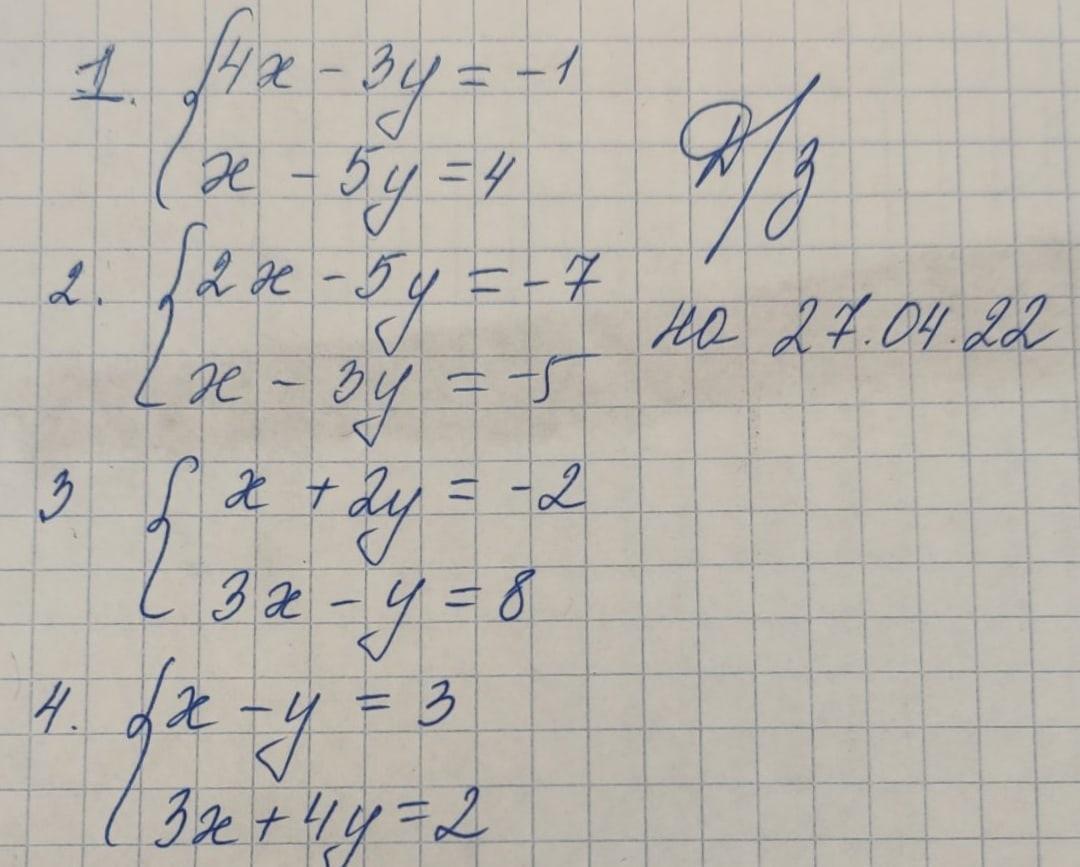 1. { 4x - 3y = -1
x - 5y = 4
Д/з
2. { 2x - 5y = -7
x - 3y = -5
на 27.04.22
3 { x + 2y = -2
3x - y = 8
4. { x - y = 3
3x + 4y = 2